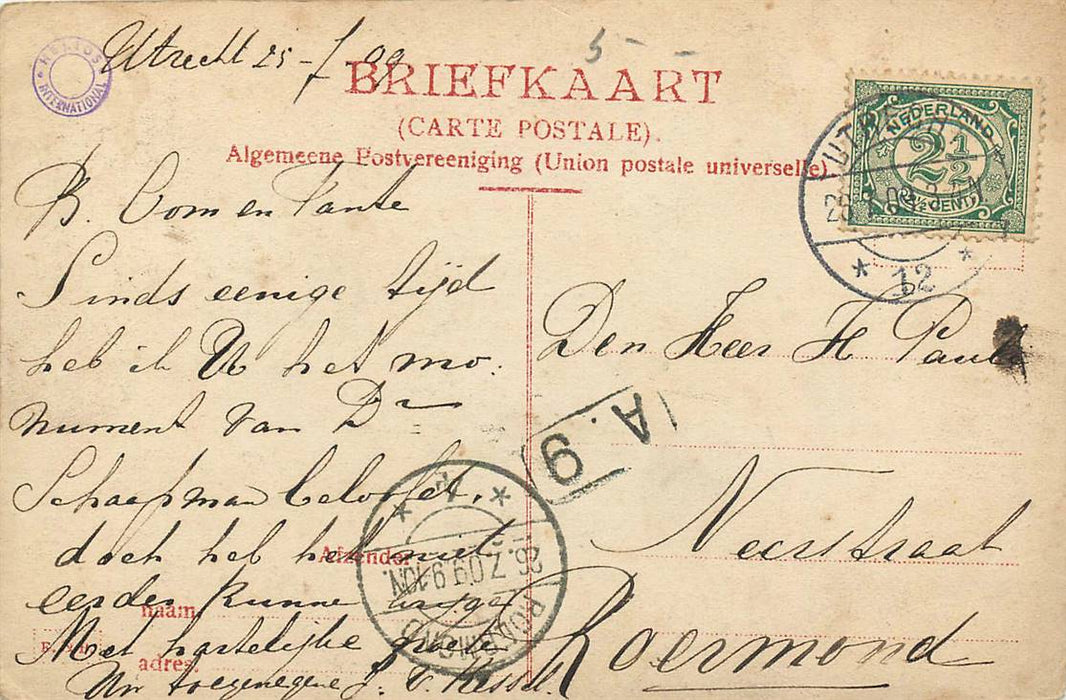 Utrecht 25-7 09
5
HELIOS INTERNATIONAL
BRIEFKAART
(CARTE POSTALE).
Algemeene Postvereeniging (Union postale universelle)
NEDERLAND
2½
2½ CENT
UTRECHT
12
B. Oom en Tante
Sinds eenige tijd
heb ik U het mo-
nument van Dr
Schaepman beloofd,
doch heb het niet
eerder kunne
Met hartelijke groete
Uw toegenegene J. v. Kessel.
Afzender
naam
adres
Den Heer H Pauls
A. 9
Neerstraat
Roermond
26. 7. 09. 9-10N.
ROERMOND